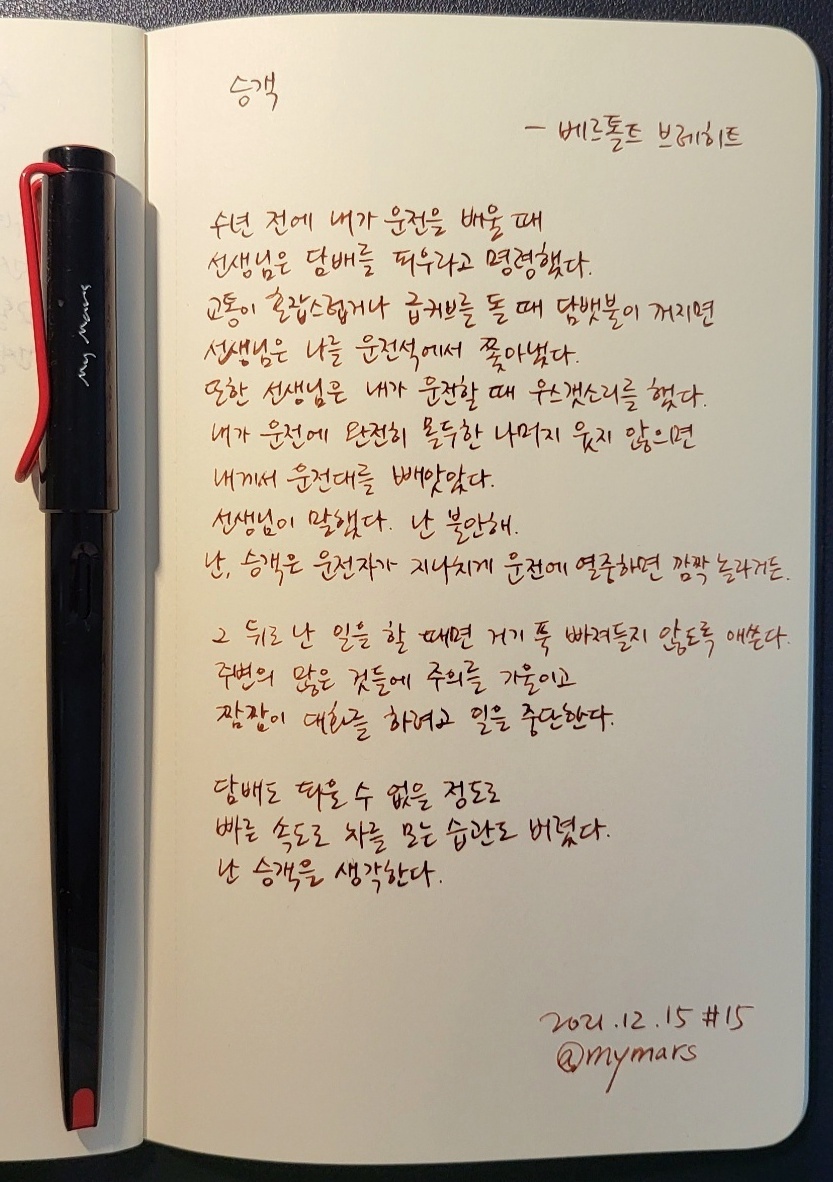 승객
- 베르톨트 브레히트
수년 전에 내가 운전을 배울 때
선생님은 담배를 피우라고 명령했다.
교통이 혼잡스럽거나 급커브를 돌 때 담뱃불이 꺼지면
선생님은 나를 운전석에서 쫓아냈다.
또한 선생님은 내가 운전할 때 우스갯소리를 했다.
내가 운전에 완전히 몰두한 나머지 웃지 않으면
내게서 운전대를 빼앗았다.
선생님이 말했다. 난 불안해.
난, 승객은 운전자가 지나치게 운전에 열중하면 깜짝 놀라거든.
그 뒤로 난 일을 할 때면 거기 푹 빠져들지 않도록 애쓴다.
주변의 많은 것들에 주의를 기울이고
짬짬이 대화를 하려고 일을 중단한다.
담배도 피울 수 없을 정도로
빠른 속도로 차를 모는 습관도 버렸다.
난 승객을 생각한다.
2021.12.15 #15
@mymars
My Mars